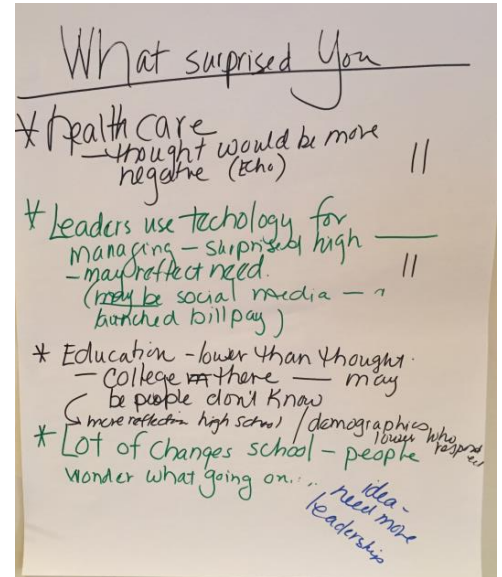 What surprised You
* health care
— thought would be more
negative (Echo) ||
* Leaders use techology for
managing — surprised high
— may reflect need. ||
(may be social media —
branched billpay)
* Education - lower than thought.
— college there — may
be people don't know
more reflection high school / demographics
lower who respond
* Lot of changes school — people
wonder what going on...
idea -
need more
leadership